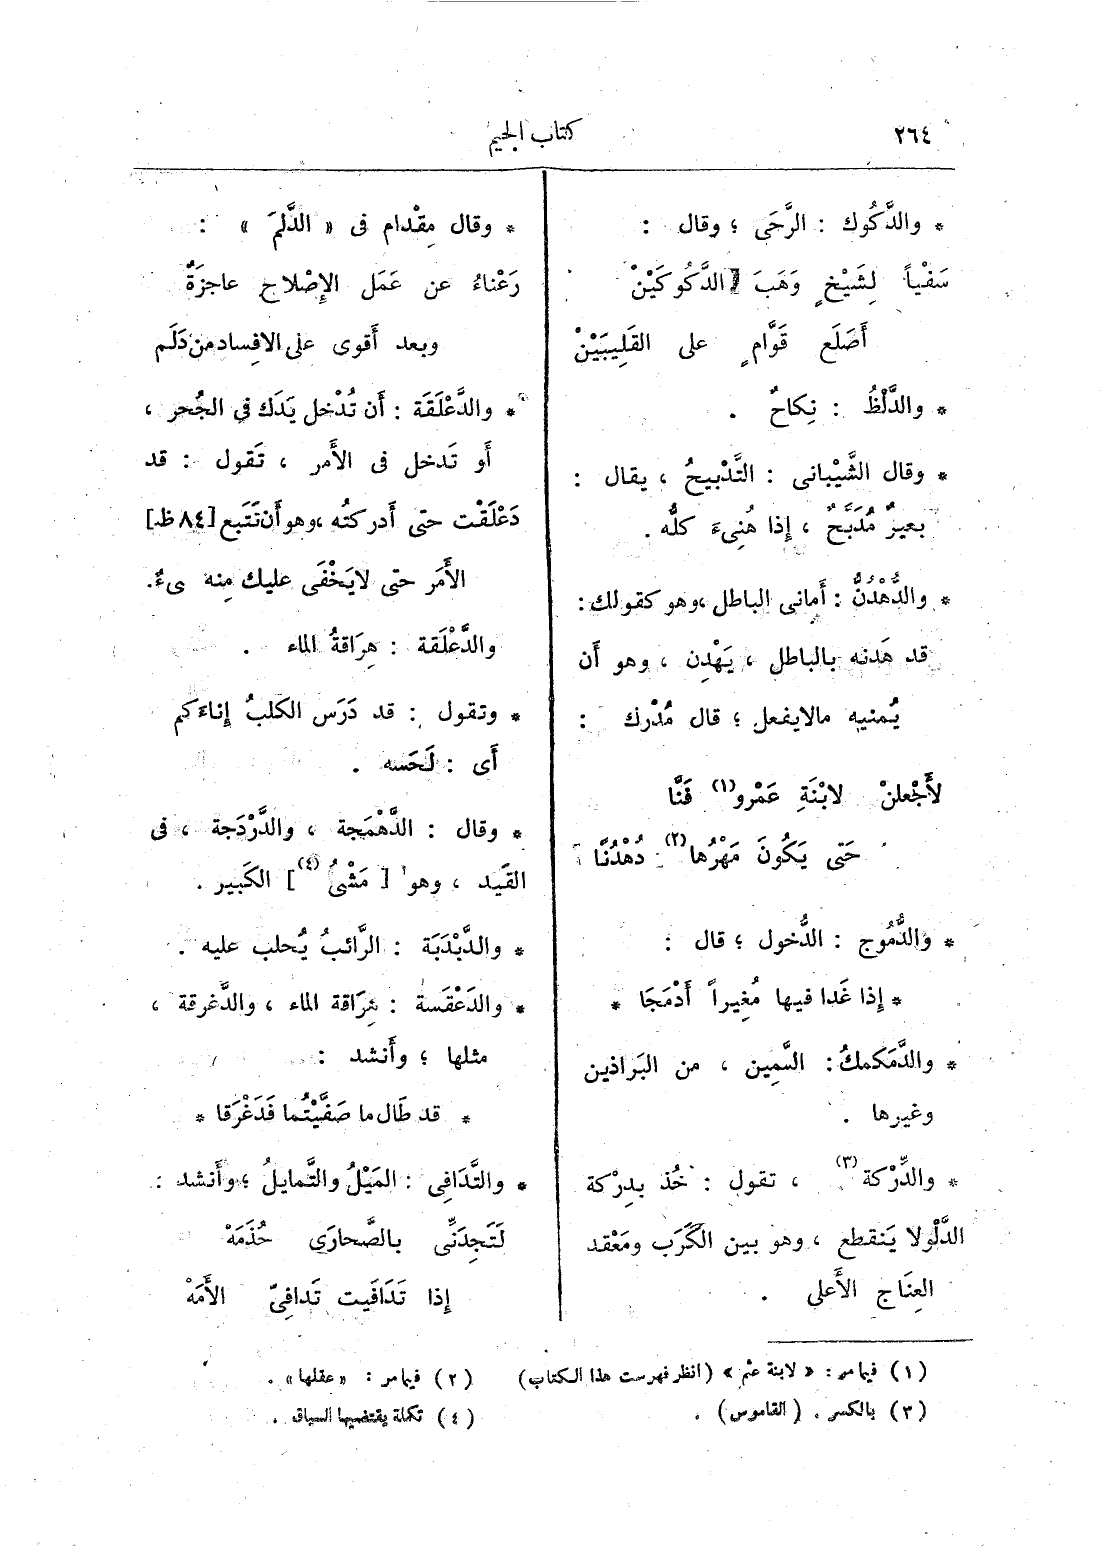 ٢٦٤
كتاب الجيم
* والدَّكُوك : الرَّحَى ؛ وقال :
سَقْياً لِشَيْخٍ وَهَبَ الدَّكُوكَيْنْ
أَصْلَع قَوَّامٍ على القَلِيبَيْنْ
* والدَّلْظُ : نِكاحٌ .
* وقال الشَّيْبانى : التَّدْبيحُ ، يقال :
بعيرٌ مُدَبَّحٌ ، إذا هُنِىءَ كلُّه .
* والدُّهْدُنُّ : أَمانى الباطل ،وهو كقولك :
قد هَدَنه بالباطل ، يَهْدِن ، وهو أن
يُمنيه مالايفعل ؛ قال مُدْرك :
لأَجْعلنْ لابْنَةِ عَمْرو(١) فَنَّا
حَتى يَكُونَ مَهْرُها(٢) دُهْدُنَّا
* والدُّمُوج : الدُّخول ؛ قال :
* إذا غَدا فيها مُغيراً أَدْمَجَا *
* والدَّمَكمكُ : السَّمِين ، من البَراذين
وغيرها .
* والدِّرْكة(٣) ، تقول : خُذ بدِرْكة
الدَّلْولا يَنقطع ، وهو بين الكَرَب ومَعْقد
العِنَاج الأَعلى .
* وقال مِقْدام فى « الدَّلَمَ » :
رَعْناءُ عن عَمَل الإِصْلاح عاجزَةٌ
وبعد أَقوى على الافِساد من دَلَم
* والدَّعْلَقَة : أَن تُدْخل يَدَك في الجُحر ،
أَو تَدخل فى الأَمر ، تَقول : قد
دَعْلَقْت حتى أَدركتُه ،وهو أَن تَتَبع [٨٤ظ]
الأَمَر حتى لايَخْفَى عليك مِنه ىءٌ.
والدَّعْلَقة : هِرَاقةُ الماء .
* وتقول : قد دَرَس الكَلبُ إِناءَكم
أَى : لَحَسه .
* وقال : الدَّهْمَجة ، والدَّرْدَجة ، فى
القَيد ، وهو [ مَشْىُ(٤) ] الكَبير .
* والدَّبْدَبَة : الرَّائبُ يُحلب عليه .
* والدَعْقَسة : هِرَاقة الماء ، والدَّغرقة ،
مثلها ؛ وأَنشد :
* قد طَال ما صَفَّيْتُما فَدَغْرَقا *
* والتَّدَافِى : المَيْلُ والتَّمايلُ ؛ وأَنشد :
لَتَجِدَنِّى بالصَّحارَى حُذَمَهْ
إذا تَدَافَيت تَدافِىّ الأَمَهْ
(١) فيما مر : « لابنة عثم » (انظر فهرست هذا الكتاب)
(٢) فيما مر : «عقلها» .
(٣) بالكسر . (القاموس) .
(٤) تكملة يقتضيها السياق .